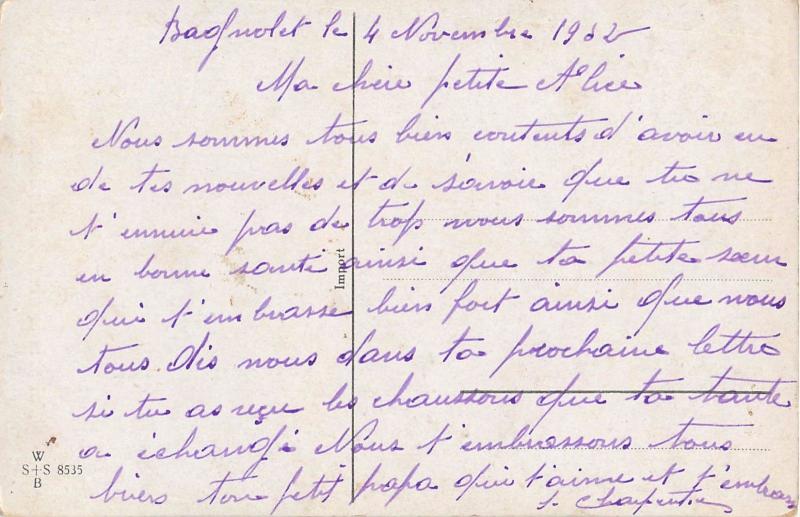 Bagnolet le 4 Novembre 1932
Ma chère petite Alice
Nous sommes tous biens contents d'avoir eu
de tes nouvelles et de savoir que tu ne
t'ennuie pas de trop nous sommes tous
en bonne santé ainsi que ta petite sœur
qui t'embrasse bien fort ainsi que nous
tous dis nous dans ta prochaine lettre
si tu as reçu les chaussons que ta tante
a échangé Nous t'embrassons tous
biens ton petit papa qui t'aime et t'embrasse
Charpentier
Import
W
S+S 8535
B